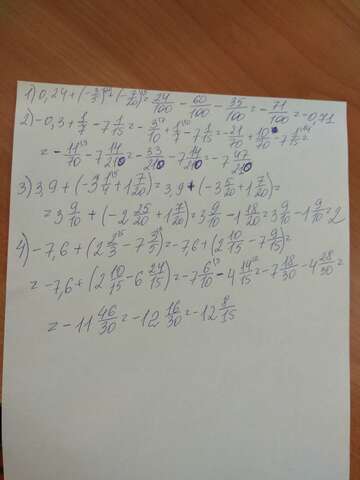 1) 0,24+(-3/5)+(-7/20)=24/100-60/100-35/100=-71/100=-0,71
2) -0,3+1/7-7 1/15=-3/10+1/7-7 1/15=-21/70+10/70-7 1/15=
=-11/70-7 14/210=-33/210-7 14/210=-7 47/210
3) 3,9+(-3 1/4+1 7/20)=3,9+(-3 5/20+1 7/20)=
=3 9/10+(-2 25/20+1 7/20)=3 9/10-1 18/20=3 9/10-1 9/10=2
4) -7,6+(2 2/3-7 3/5)=-7,6+(2 10/15-7 9/15)=
=-7,6+(2 10/15-6 24/15)=-7 6/10-4 14/15=-7 18/30-4 28/30=
=-11 46/30=-12 16/30=-12 8/15